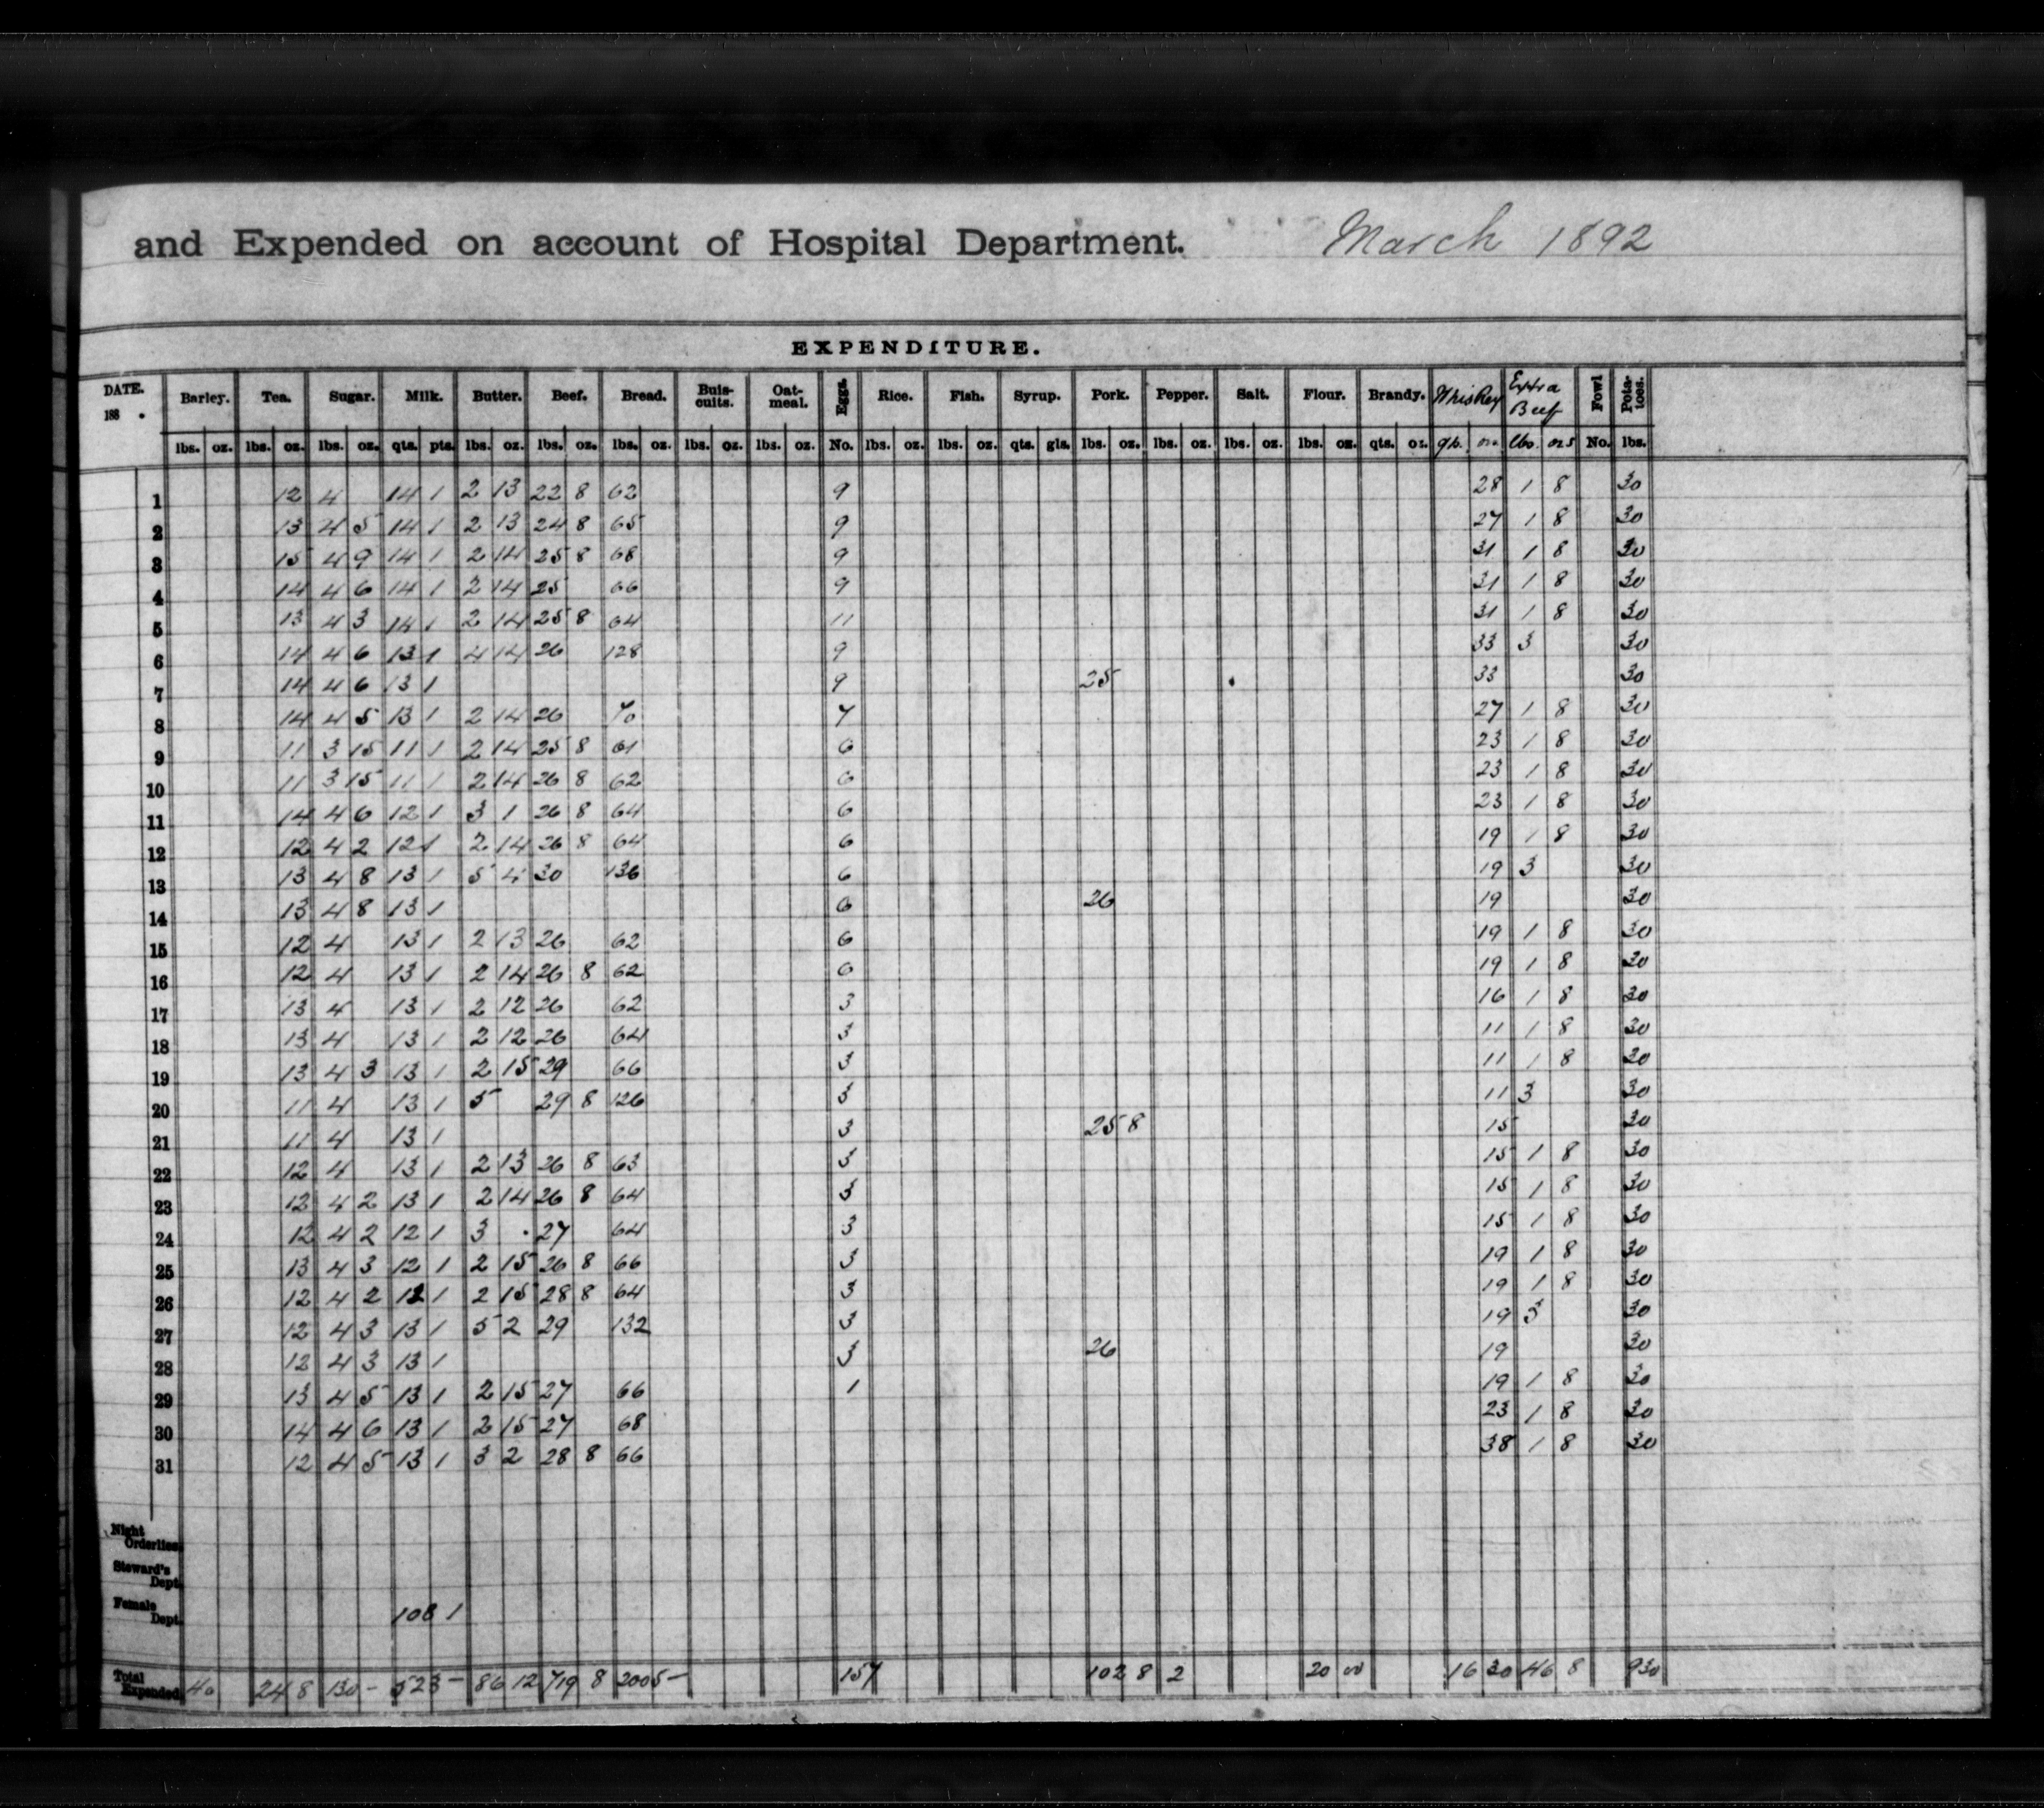 and Expended on account of Hospital Department. March 1892
EXPENDITURE.
DATE. 188 . Barley. Tea. Sugar. Milk. Butter. Beef. Bread. Buiscuits. Oatmeal. Eggs. Rice. Fish. Syrup. Pork. Pepper. Salt. Flour. Brandy. Whiskey Extra Beef Fowl Potatoes.
lbs. oz. lbs. oz. lbs. oz. qts. pts. lbs. oz. lbs. oz. lbs. oz. lbs. oz. lbs. oz. No. lbs. oz. lbs. oz. qts. gls. lbs. oz. lbs. oz. lbs. oz. lbs. oz. qts. oz. oz. lbs. ozs No. lbs.
1 12 4 14 1 2 13 22 8 62 9 28 1 8 30
2 13 4 5 14 1 2 13 24 8 65 9 27 1 8 30
3 15 4 9 14 1 2 14 25 8 68 9 31 1 8 30
4 14 4 6 14 1 2 14 25 66 9 31 1 8 30
5 13 4 3 14 1 2 14 25 8 64 11 31 1 8 30
6 14 4 6 13 1 4 14 26 128 9 33 3 30
7 14 4 6 13 1 9 25 33 30
8 14 4 5 13 1 2 14 26 70 7 27 1 8 30
9 11 3 15 11 1 2 14 25 8 61 6 23 1 8 30
10 11 3 15 11 1 2 14 26 8 62 6 23 1 8 30
11 14 4 6 12 1 3 1 26 8 64 6 23 1 8 30
12 12 4 2 12 1 2 14 26 8 64 6 19 1 8 30
13 13 4 8 13 1 5 4 30 136 6 19 3 30
14 13 4 8 13 1 6 26 19 30
15 12 4 13 1 2 13 26 62 6 19 1 8 30
16 12 4 13 1 2 14 26 8 62 6 19 1 8 30
17 13 4 13 1 2 12 26 62 3 16 1 8 30
18 13 4 13 1 2 12 26 64 3 11 1 8 30
19 13 4 3 13 1 2 15 29 66 3 11 1 8 30
20 11 4 13 1 5 29 8 126 3 11 3 30
21 11 4 13 1 3 25 8 15 30
22 12 4 13 1 2 13 26 8 63 3 15 1 8 30
23 12 4 2 13 1 2 14 26 8 64 3 15 1 8 30
24 12 4 2 12 1 3 27 64 3 15 1 8 30
25 13 4 3 12 1 2 15 26 8 66 3 19 1 8 30
26 12 4 2 12 1 2 15 28 8 64 3 19 1 8 30
27 12 4 3 13 1 5 2 29 132 3 19 3 30
28 12 4 3 13 1 3 26 19 30
29 13 4 5 13 1 2 15 27 66 1 19 1 8 30
30 14 4 6 13 1 2 15 27 68 23 1 8 30
31 12 4 5 13 1 3 2 28 8 66 38 1 8 30
Night Orderlies.
Steward's Dept.
Female Dept. 108 1
Total Expended. 40 24 8 130 - 523 - 86 12 719 8 2005 - 157 102 8 2 20 00 16 30 46 8 930